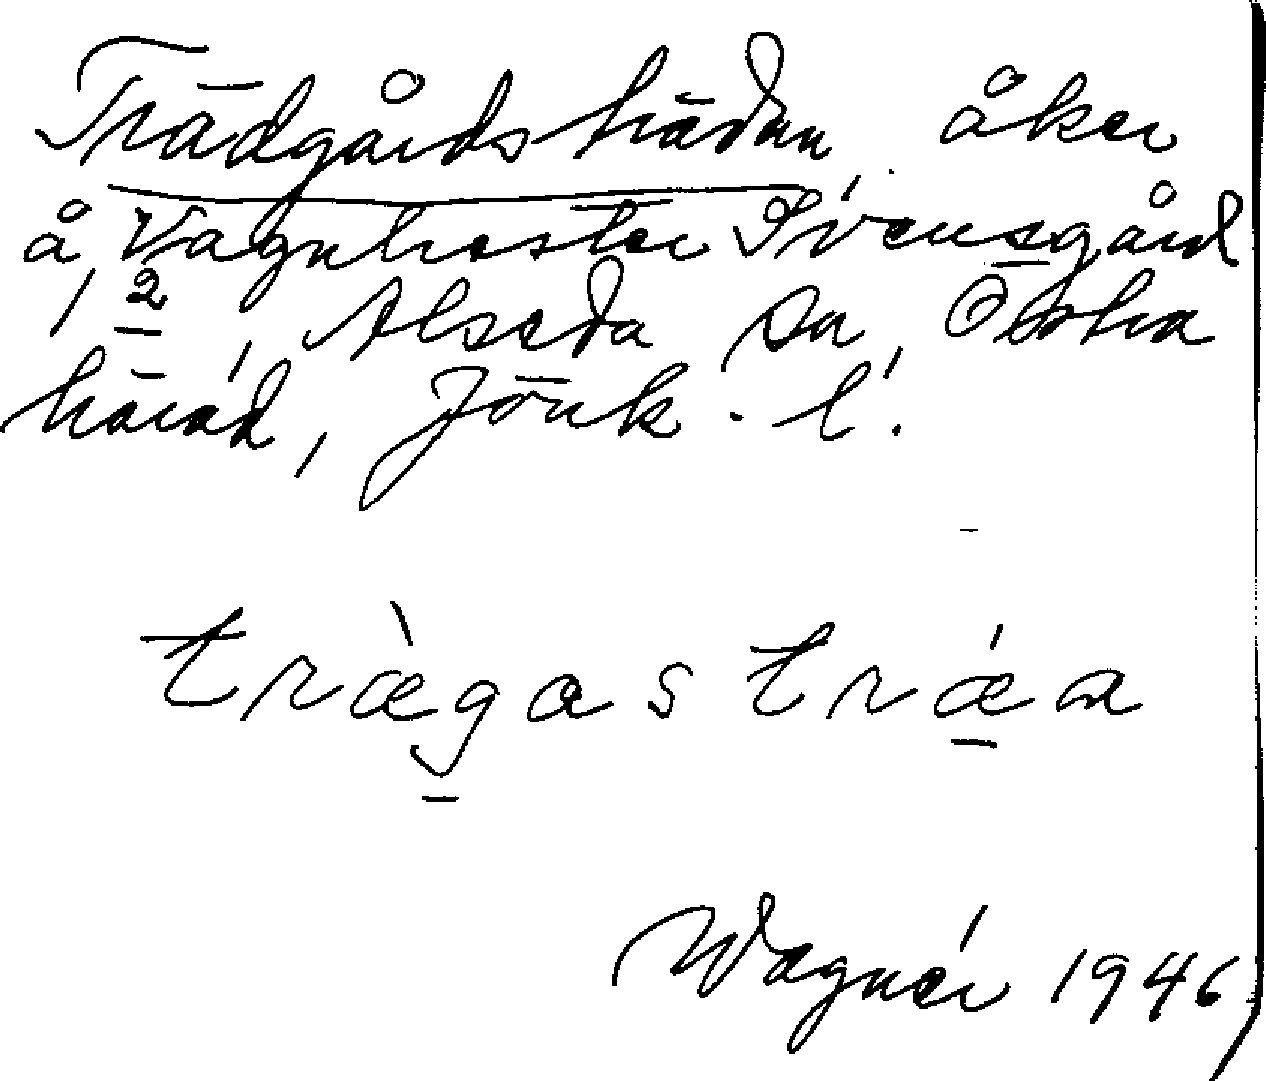 Trädgårdsträdan, åker
å Vagnhester Svensgård
1/2, Alseda sn, Östra
härad, Jönk. l.
trægastræa
Wagnér 1946